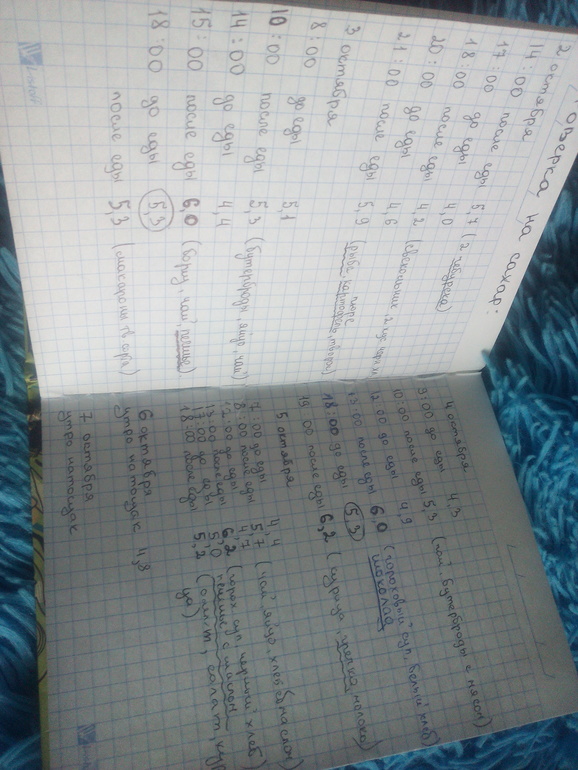 Проверка на сахар:
2 октября
14:00
17:00 после еды 5,7 (2 чебурека)
18:00 до еды 4,0
20:00 после еды
21:00 до еды 4,2
после еды 4,6
3 октября
8:00 до еды 5,1
10:00 после еды 5,3 (бутерброды, яйцо, чай)
14:00 до еды 4,4
15:00 после еды 6,0 (борщ, чай, печенье)
18:00 до еды 5,3
после еды 5,3 (макароны тв сыра)
5,9 (рыба, картофель пюре, творог)
4 октября
9:00 до еды 4,3
10:00 после еды 5,3 (чай, бутерброды с мясом)
12:00 до еды 4,9
13:00 после еды 6,0 (гороховый суп, белый хлеб) шоколад
18:00 до еды 5,3
19:00 после еды 6,2 (курица, молоко)
5 октября
7:00 до еды 4,4
8:00 после еды 5,7 (чай, яйцо, хлеб с маслом)
12:00 до еды 4,7
13:00 после еды 6,2 (горох суп черный хлеб)
17:00 до еды 5,0 печенье с маслом
18:00 после еды 5,2 (омлет, салат, курица)
6 октября
утро натощак 4,8
7 октября
утро натощак